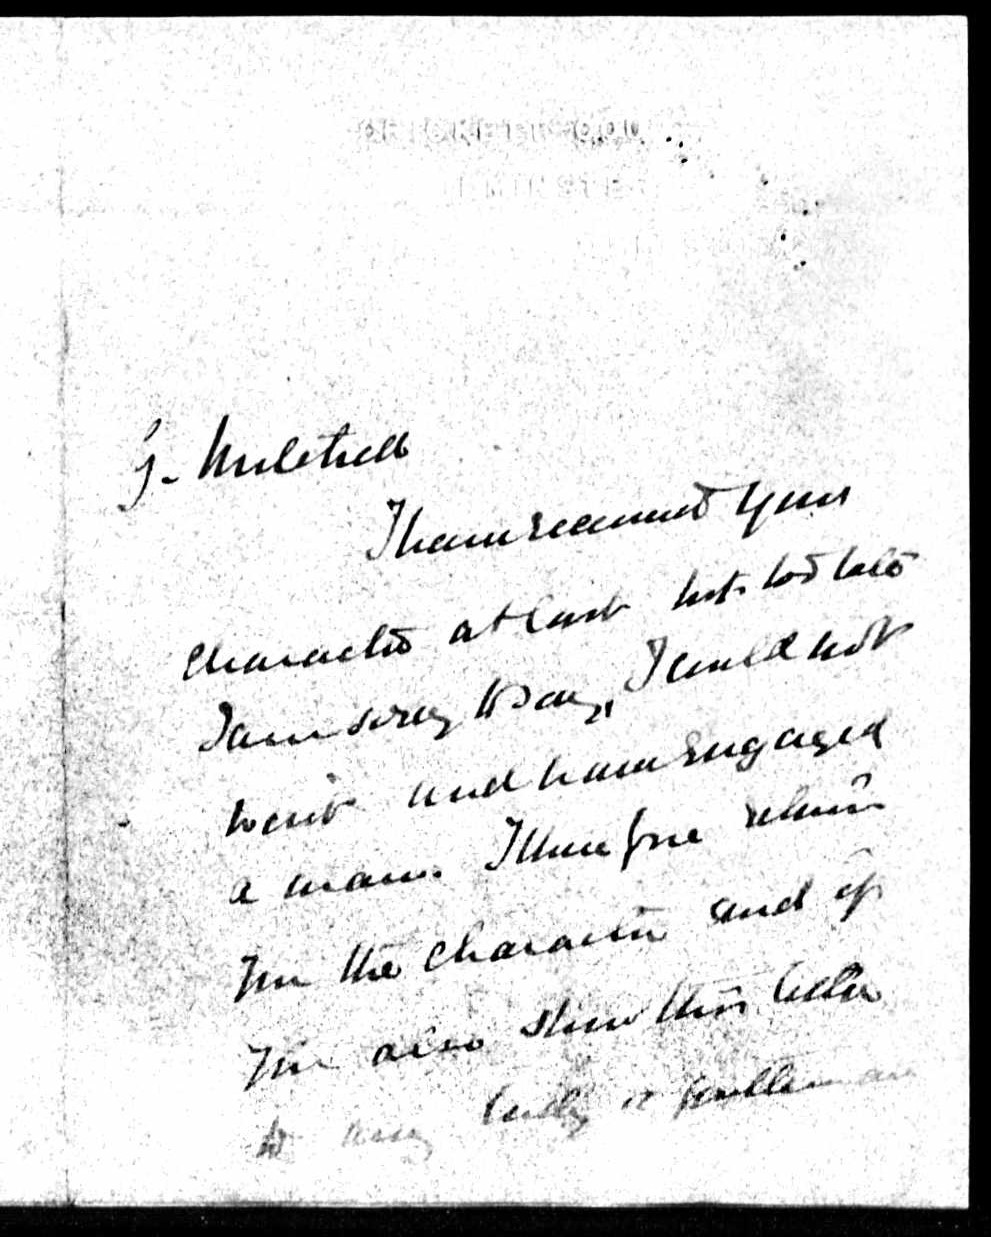 I have received your
character at last but too late
I am sorry to say, I could not
wait and have engaged
a man. I therefore return
you the character and if
you also show this letter
to any lady or gentleman